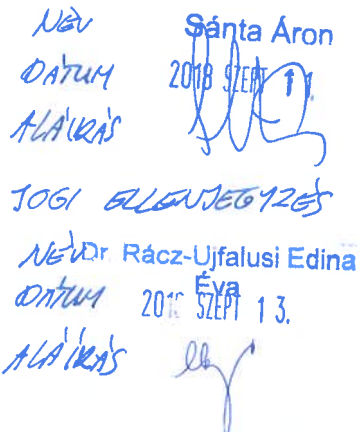 NÉV Sánta Áron
DÁTUM 2018 SZEPT 11.
ALÁÍRÁS
JOGI ELLENJEGYZÉS
NÉV Dr. Rácz-Ujfalusi Edina
Éva
DÁTUM 201 SZEPT 13.
ALÁÍRÁS